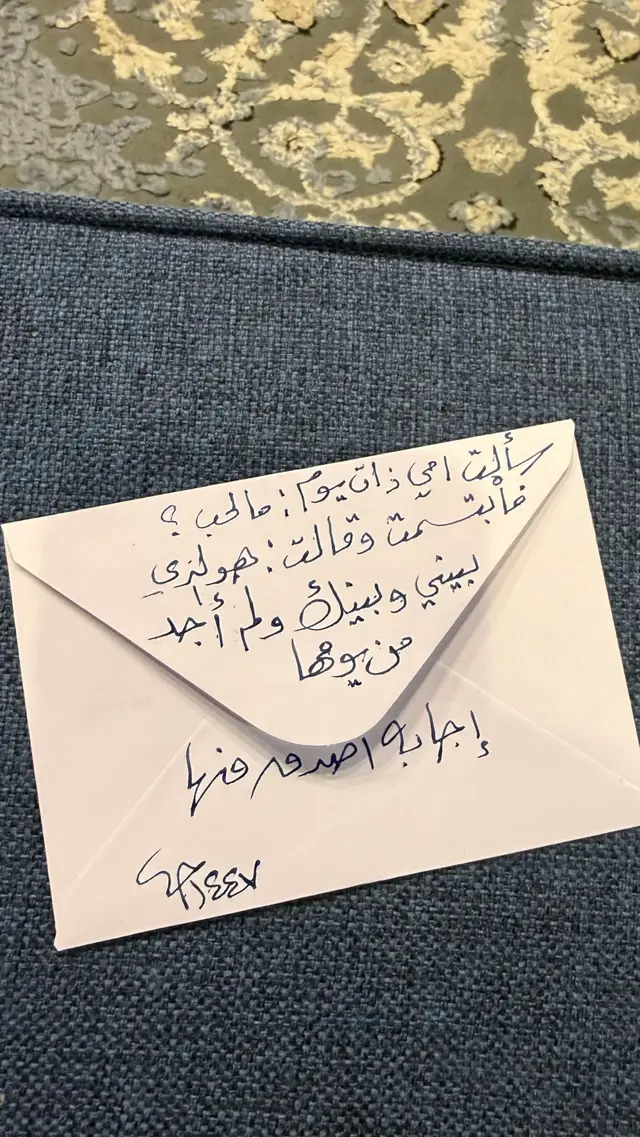 سألت امي ذات يوم: مالحب ؟
فأبتسمت وقالت: هولذي
بيني وبينك ولم أجد
من يومها
إجابه اصدق منها
١٤٤٧